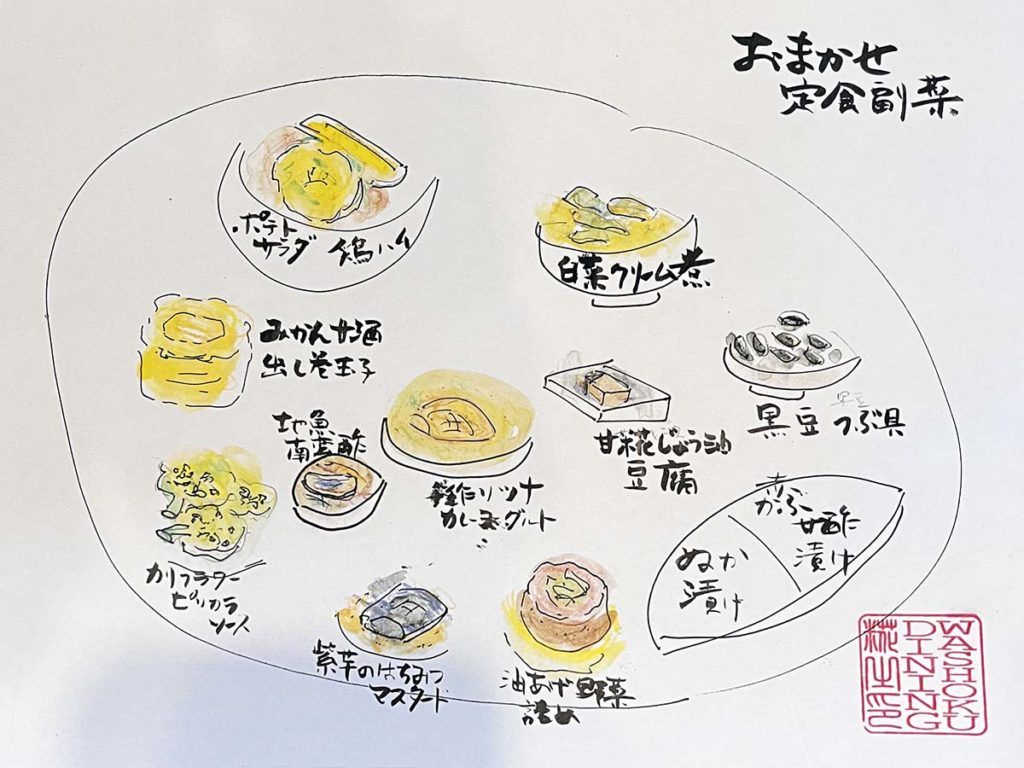 おまかせ
定食副菜
ポテト
サラダ
白菜クリーム煮
みかん甘酒
出し巻玉子
黒豆 つぶ貝
地魚
南蛮酢
甘糀じょう油
豆腐
ツナ
カレーヨーグルト
赤かぶ
甘酢
漬け
ぬか
漬け
カリフラワー
ピリカラ
ソース
紫芋のはちみつ
マスタード
油あげ野菜
詰め
WASHOKU
DINING